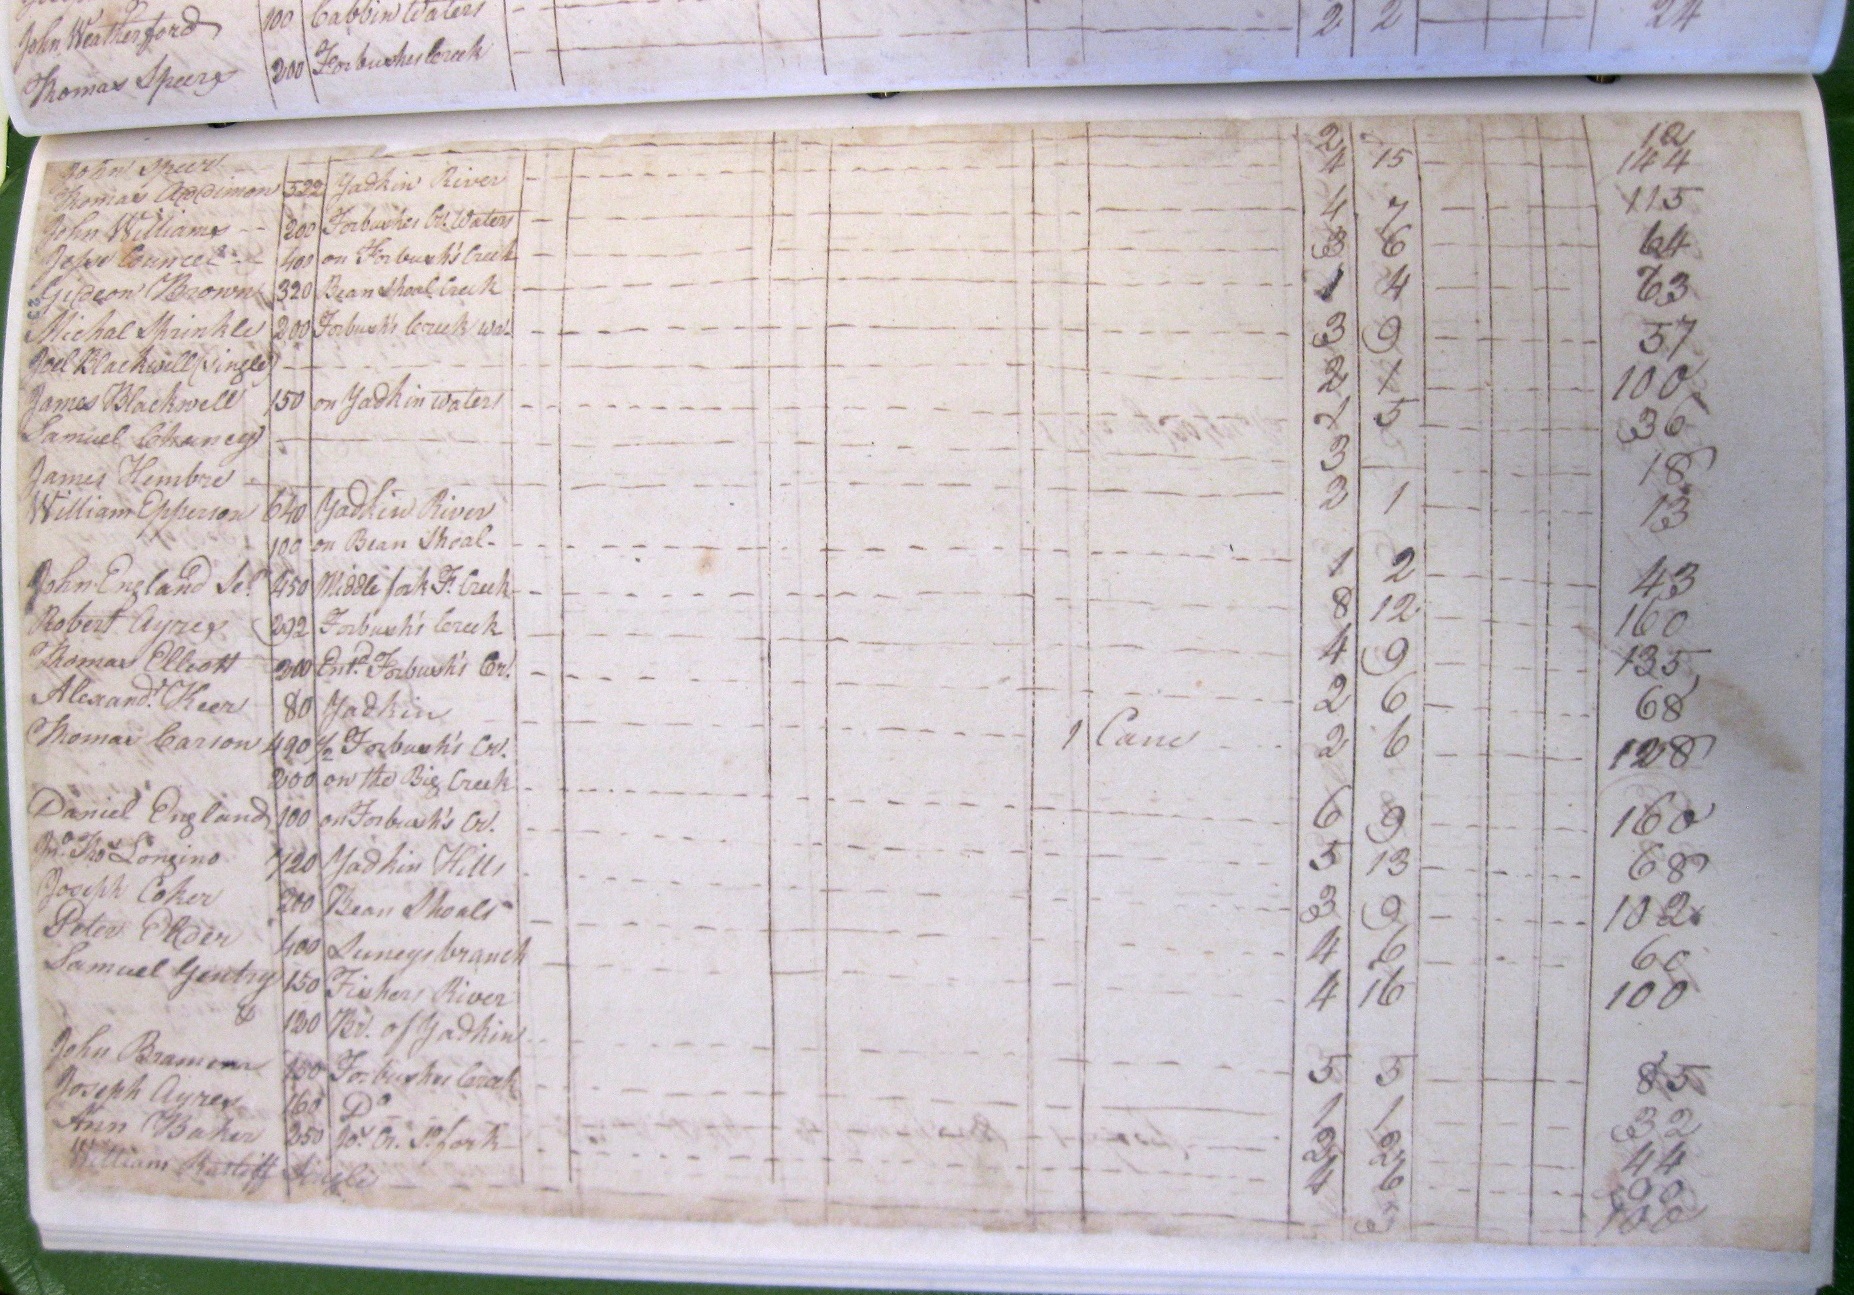 John Weatherford 100 Cabbin Waters 2 2 24
Thomas Speers 200 Forbushes Creek
John Speer 2 12
Thomas Addimon 522 Yadkin River 4 15 144
John Williams 200 Forbushes Cr. Waters 4 7 115
Jesse Councel 400 on Forbush's Creek 3 6 64
Gideon Brown 320 Bean Shoal Creek 1 4 63
Michal Sprinkle 200 Forbush's Creek wa. 3 9 57
Joel Blackwell (single) 2 1 100
James Blackwell 150 on Yadkin waters 2 5 36
Samuel Chancey 3 18
James Hembre 2 1 13
William Epperson 640 Yadkin River
100 on Bean Shoal 1 2 43
John England Se.r 450 Middle fork F. Creek 8 12 160
Robert Ayres 292 Forbush's Creek 4 9 135
Thomas Elliott 200 Ent.d Forbush's Cr. 2 6 68
Alexand.r Keer 80 Yadkin 1 Cane 2 6 128
Thomas Carson 490 1/2 Forbush's Cr.
200 on the Big Creek 6 9 160
Daniel England 100 on Forbush's Cr. 5 13 68
Jno. Thos. Longino 120 Yadkin Hills 3 9 102
Joseph Coker 200 Bean Shoals 4 6 60
Peter Elder 400 Luneys branch 4 16 100
Samuel Gentry 150 Fishers River
& 120 Br. of Yadkin 5 5 85
John Bramem 150 Forbushes Creek 1 1 32
Joseph Ayres 160 Do 2 2 44
Ann Baker 250 Jos. Cr. So. fork 4 6
William Ratliff Single 3 100